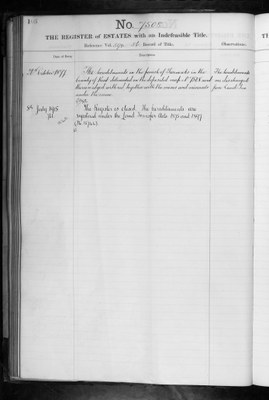 No. 750
THE REGISTER of ESTATES with an Indefeasible Title.
Reference Vol. Record of Title.
Observations.
Date of Entry.
Description.
October 1877
The hereditaments in the parish of in the
The hereditaments
County of Kent delineated on the deposited map and
are discharged
thereon edged with red together with the mines and minerals
from Land Tax
under the same
July 1906
The Register is closed. The hereditaments are
registered under the Land Transfer Acts 1875 and 1897